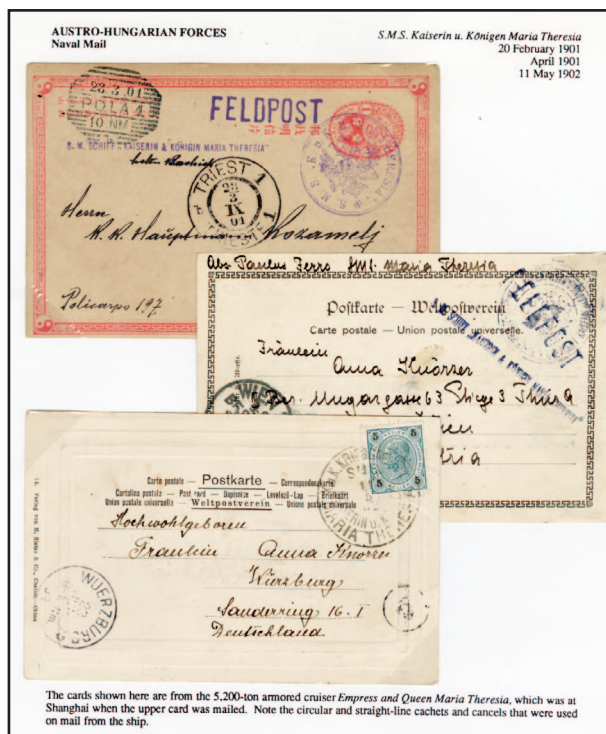 AUSTRO-HUNGARIAN FORCES
Naval Mail
S.M.S. Kaiserin u. Königen Maria Theresia
20 February 1901
April 1901
11 May 1902
23.3.01
POLA 4
10 NM
FELDPOST
S. M. SCHIFF „KAISERIN & KÖNIGIN MARIA THERESIA"
TRIEST 1
IX
01
TRIESTE 1
Herrn
K. K. Hauptmann Kozamelj
Policarpo 197
Abs. Paulus Ferro SMS. Maria Theresia
Postkarte — Weltpostverein
Carte postale — Union postale universelle.
FELDPOST
Fräulein
Anna Knörzer
Ungargasse 63 Stiege 3 Thür 9
WIEN
Wien
Carte postale — Postkarte — Correspondenzkarte
Cartolina postale — Post card — Dopisnice — Levelező-Lap — Briefkart
Weltpostverein — Union postale universelle
5 5
MARIA THERES
Hochwohlgeboren
Fräulein Anna Knörzer
Würzburg
Sanderring 16. I
Deutschland
WUERZBURG
The cards shown here are from the 5,200-ton armored cruiser Empress and Queen Maria Theresia, which was at
Shanghai when the upper card was mailed. Note the circular and straight-line cachets and cancels that were used
on mail from the ship.